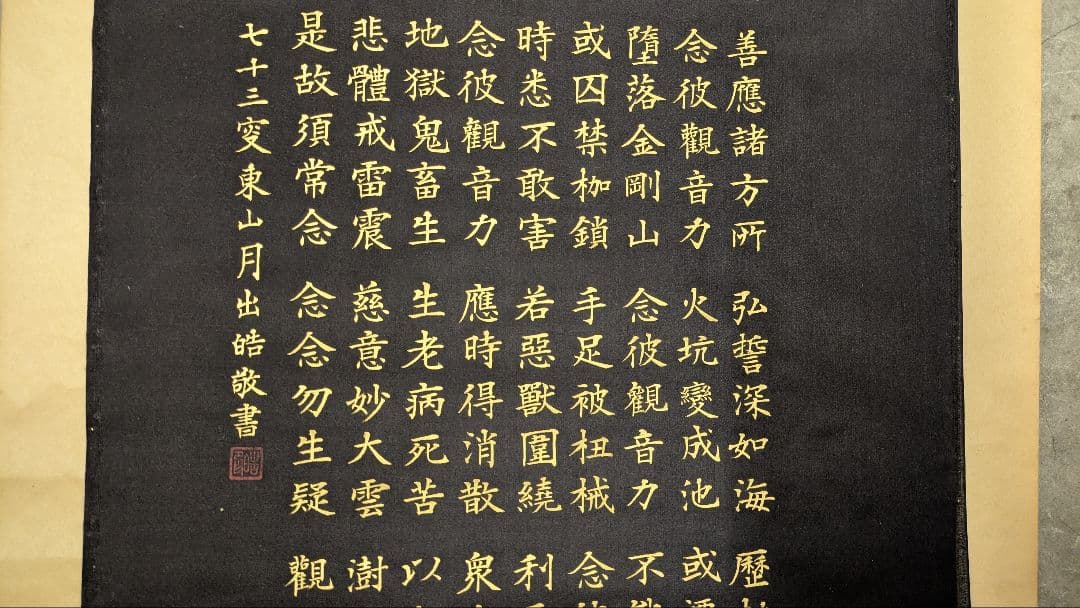 善應諸方所 弘誓深如海 歷
念彼觀音力 火坑變成池 或
墮落金剛山 念彼觀音力 不
或囚禁枷鎖 手足被杻械 念
時悉不敢害 若惡獸圍繞 利
念彼觀音力 應時得消散 衆
地獄鬼畜生 生老病死苦 以
悲體戒雷震 慈意妙大雲 澍
是故須常念 念念勿生疑 觀
七十三叟東山月出皓敬書